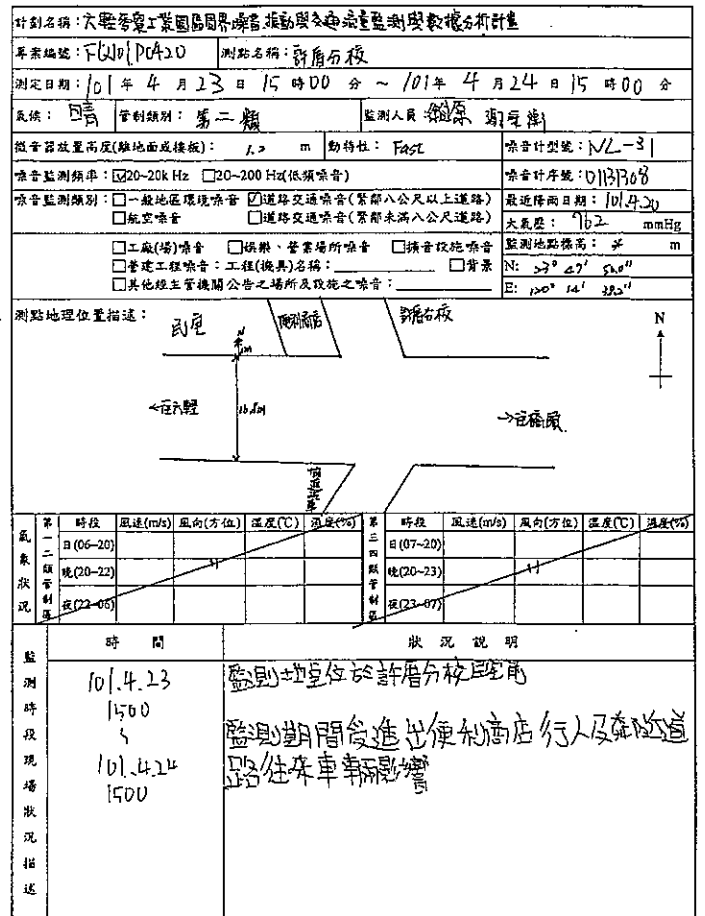 計劃名稱：六輕麥寮工業園區周界噪音、振動與交通流量監測與數據分析計畫
專案編號：FQ101P0420 測點名稱：許厝分校
測定日期：101年4月23日15時00分～101年4月24日15時00分
氣候：晴 管制類別：第二類 監測人員
微音器放置高度(離地面或樓板)：1.2 m 動特性：Fast 噪音計型號：NL-31
噪音監測頻率：☑20~20k Hz □20~200 Hz(低頻噪音) 噪音計序號：01131308
噪音監測類別：□一般地區環境噪音 ☑道路交通噪音(緊鄰八公尺以上道路) 最近降雨日期：101.4.20
□航空噪音 □道路交通噪音(緊鄰未滿八公尺道路) 大氣壓：762 mmHg
□工廠(場)噪音 □娛樂、營業場所噪音 □擴音設施噪音 監測地點標高： m
□營建工程噪音：工程(機具)名稱： □背景 N: 23° 47'
□其他經主管機關公告之場所及設施之噪音： E: 120° 14'
測點地理位置描述：
民宅 便利商店 許厝分校 N
N
1m
←往六輕
→往橋頭
氣象狀況
第一二類管制區 時段 風速(m/s) 風向(方位) 溫度(℃) 濕度(%) 第三四類管制區 時段 風速(m/s) 風向(方位) 溫度(℃) 濕度(%)
日(06~20) 日(07~20)
晚(20~22) 晚(20~23)
夜(22~06) 夜(23~07)
監測時段現場狀況描述
時 間 狀 況 說 明
101.4.23 監測地點位於許厝分校
1500
~ 監測期間受進出便利商店行人及鄰近道
101.4.24 路往來車輛影響
1500